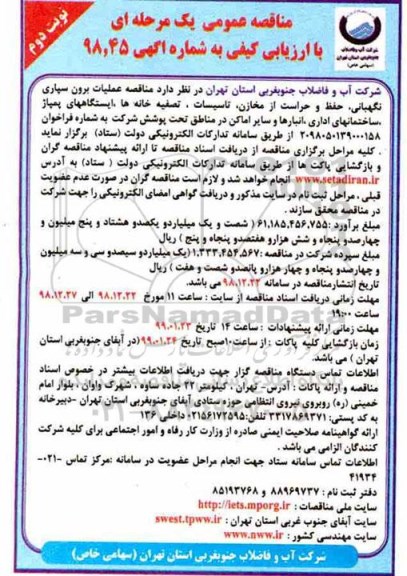 نوبت دوم
مناقصه عمومی یک مرحله ای
با ارزیابی کیفی به شماره اگهی ۹۸,۴۵
شرکت آب و فاضلاب
جنوبغربی استان تهران
(سهامی خاص)
شرکت آب و فاضلاب جنوبغربی استان تهران در نظر دارد مناقصه عملیات برون سپاری
نگهبانی، حفظ و حراست از مخازن، تاسیسات ، تصفیه خانه ها ،ایستگاههای پمپاژ
،ساختمانهای اداری ،انبارها و سایر اماکن در مناطق تحت پوشش شرکت به شماره فراخوان
۲۰۹۸۰۵۰۱۳۹۰۰۰۱۵۸ از طریق سامانه تدارکات الکترونیکی دولت (ستاد) برگزار نماید
. کلیه مراحل برگزاری مناقصه از دریافت اسناد مناقصه تا ارائه پیشنهاد مناقصه گران
و بازگشایی پاکت ها از طریق سامانه تدارکات الکترونیکی دولت ( ستاد) به آدرس
www.setadiran.ir انجام خواهد شد و لازم است مناقصه گران در صورت عدم عضویت
قبلی ، مراحل ثبت نام در سایت مذکور و دریافت گواهی امضای الکترونیکی را جهت شرکت
در مناقصه محقق سازند .
مبلغ برآورد :۶۱,۱۸۵,۴۵۶,۷۵۵ ( شصت و یک میلیاردو یکصدو هشتاد و پنج میلیون و
چهارصدو پنجاه و شش هزارو هفتصدو پنجاه و پنج ) ریال
مبلغ سپرده شرکت در مناقصه :۱,۳۳۳,۴۵۴,۵۶۷(یک میلیاردو سیصدو سی و سه میلیون
و چهارصدو پنجاه و چهار هزارو پانصدو شصت و هفت ) ریال
تاریخ انتشارمناقصه در سامانه ۹۸,۱۲,۲۲ می باشد.
مهلت زمانی دریافت اسناد مناقصه از سایت : ساعت ۱۱ مورخ ۹۸,۱۲,۲۲ الی ۹۸,۱۲,۲۷
ساعت ۱۹:۰۰
مهلت زمانی ارائه پیشنهادات : ساعت ۱۴ تاریخ ۹۹,۰۱,۲۳
زمان بازگشایی کلیه پاکات : از ساعت۱۰صبح تاریخ ۹۹,۰۱,۲۴(در آبفای جنوبغربی استان
تهران ) می باشد.
اطلاعات تماس دستگاه مناقصه گزار جهت دریافت اطلاعات بیشتر در خصوص اسناد
مناقصه و ارائه پاکات : آدرس- تهران ، کیلومتر ۲۲ جاده ساوه ، شهرک واوان - بلوار امام
خمینی (ره) روبروی نیروی انتظامی حوزه ستادی آبفای جنوبغربی استان تهران -دبیرخانه
به کد پستی: ۳۳۱۷۸۶۹۳۷۱ تلفن:۰۲۱۵۶۱۷۲۵۹۵ داخلی ۱۳۶
ارائه گواهینامه صلاحیت ایمنی صادره از وزارت کار رفاه و امور اجتماعی برای کلیه شرکت
کنندگان الزامی می باشد .
اطلاعات تماس سامانه ستاد جهت انجام مراحل عضویت در سامانه :مرکز تماس -۰۲۱
۴۱۹۳۴
دفتر ثبت نام : ۸۸۹۶۹۷۳۷ و ۸۵۱۹۳۷۶۸
سایت ملی مناقصات : http://iets.mporg.ir
سایت آبفای جنوب غربی استان تهران : swest.tpww.ir
سایت مهندسی کشور : www.nww.ir
شرکت آب و فاضلاب جنوبغربی استان تهران (سهامی خاص)
ParsNamadData